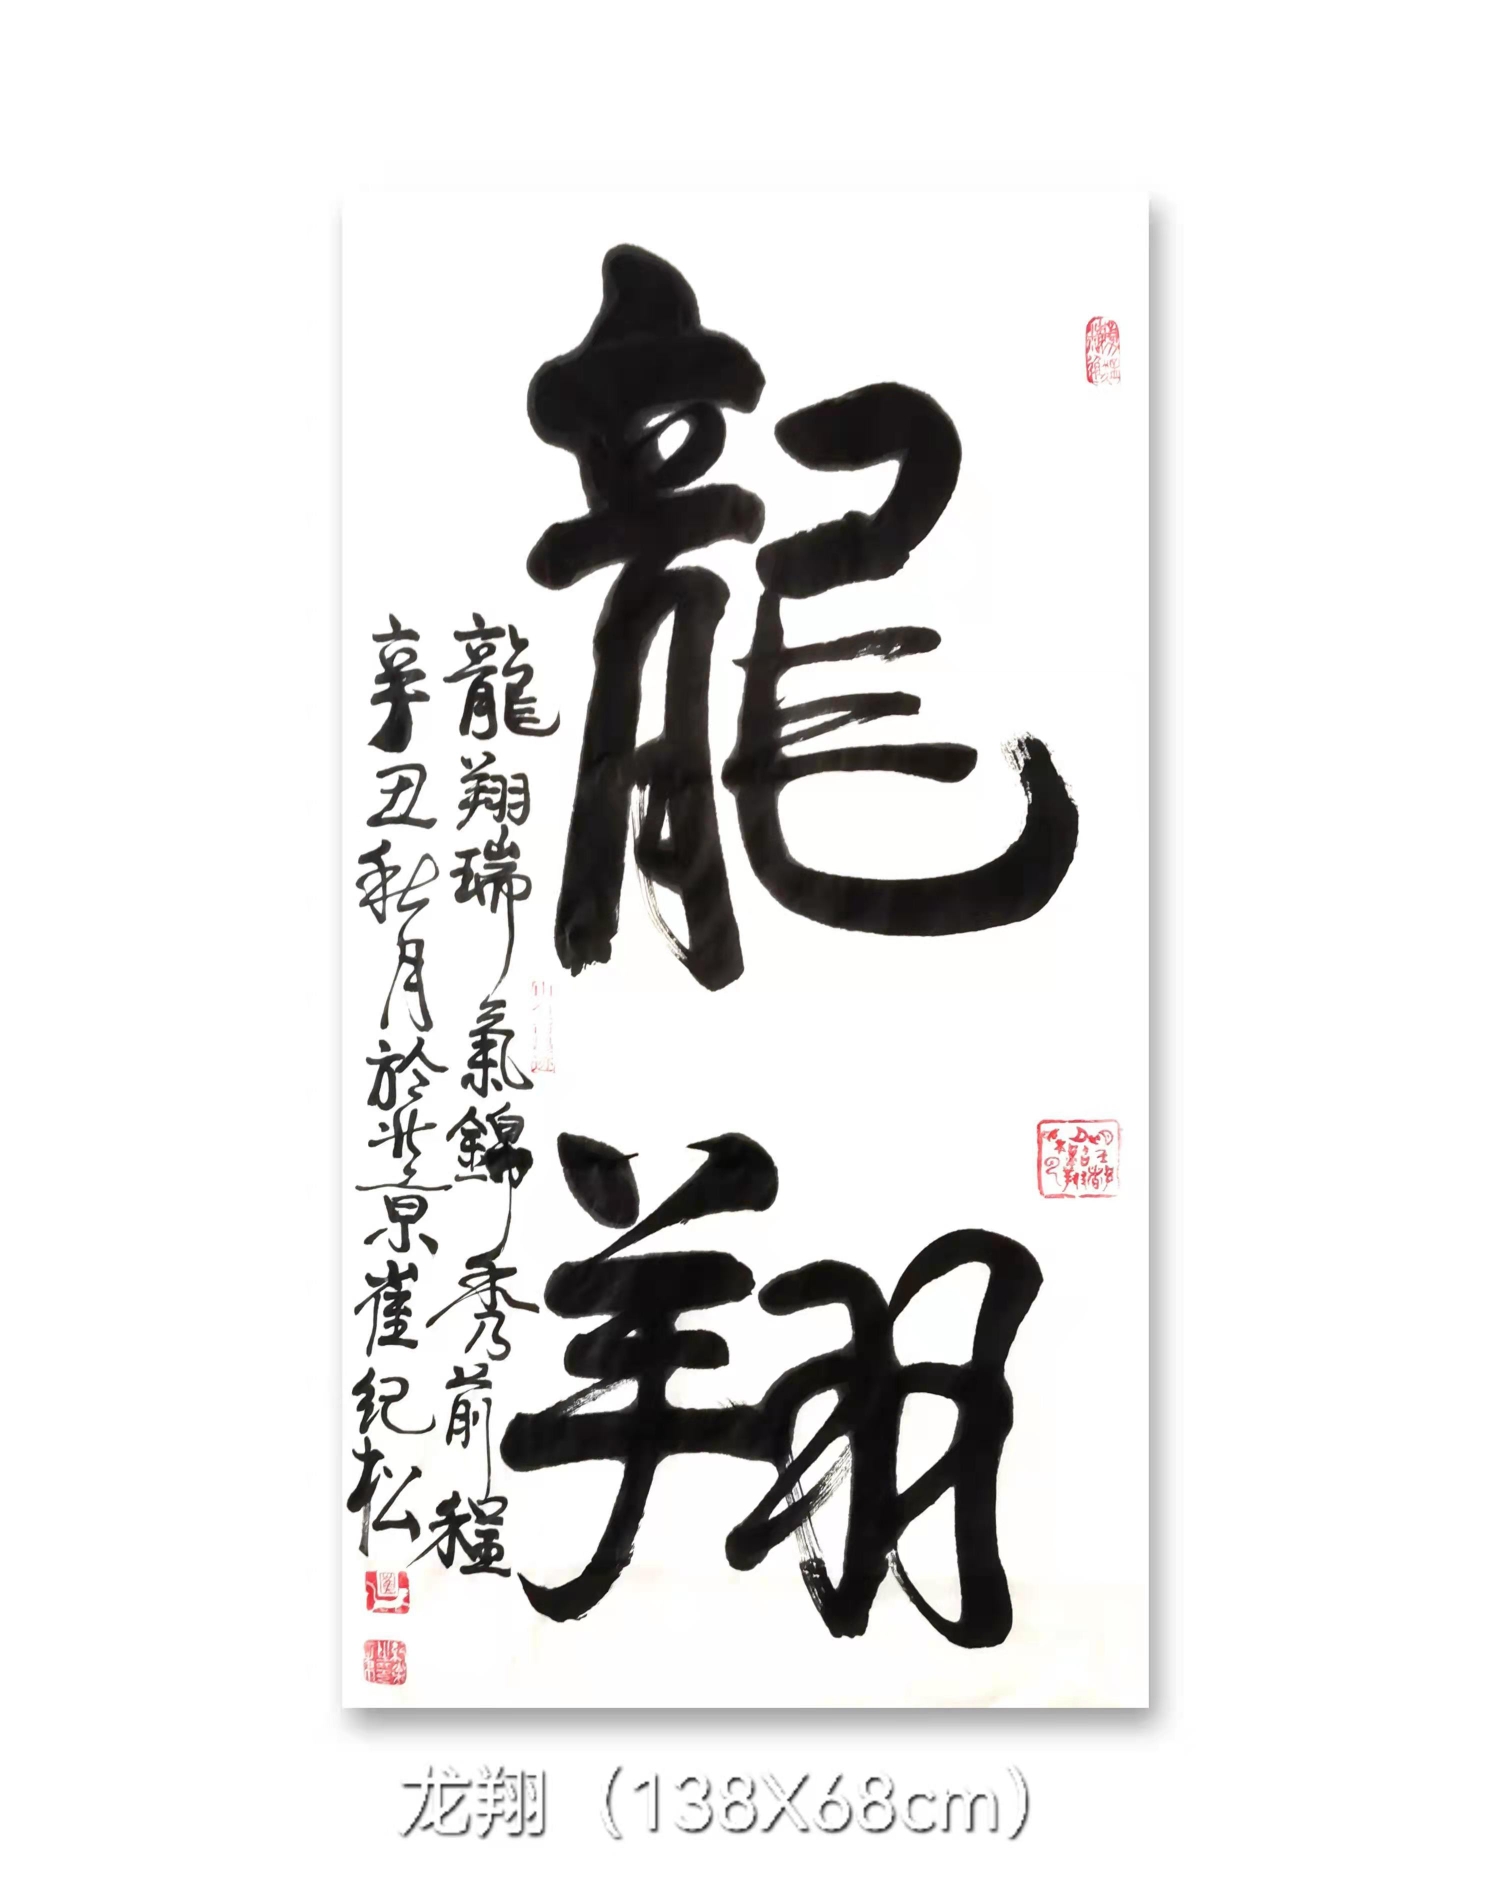 龍翔
龍翔瑞氣錦秀前程
辛丑秋月於北京崔纪松
龙翔（138X68cm）